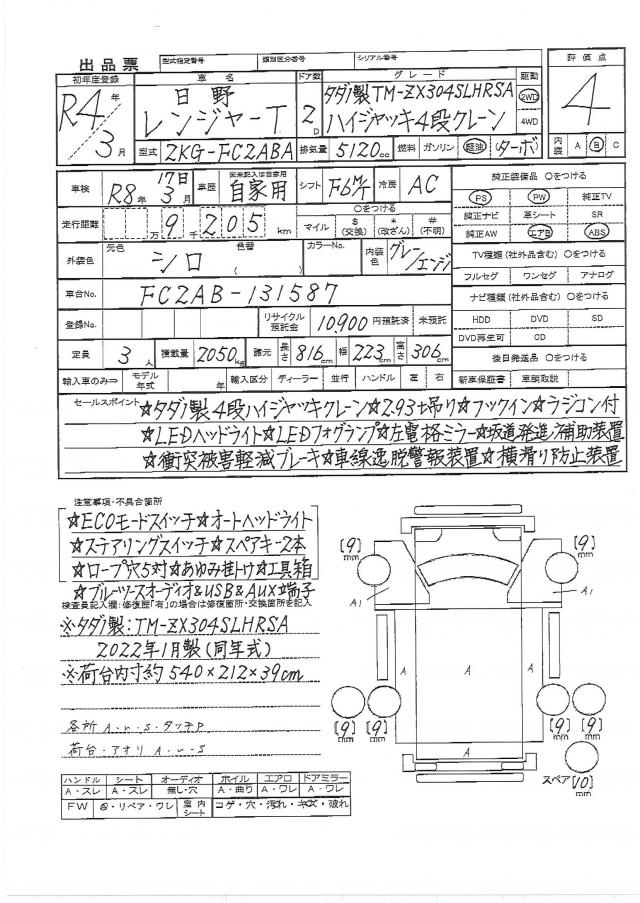 出品票 型式指定番号 類別区分番号 シリアル番号
初年度登録 車名 ドア数 グレード 駆動 評価点
R4年 日野 タダノ製TM-ZX304SLHRSA 2WD
3月 レンジャーT 2D ハイジャッキ4段クレーン 4WD 4
型式 2KG-FC2ABA 排気量 5120cc 燃料 ガソリン 軽油 (ターボ) 内装 A B C
車検 R8年 17日 3月 車歴 ※未記入は自家用 自家用 シフト F6M/T 冷房 AC 純正装備品 ○をつける
PS PW 純正TV
走行距離 万9千205km ○をつける マイル $(交換) *(改ざん) #(不明) 純正ナビ 革シート SR
純正AW エアB ABS
外装色 元色 シロ 色替 ( ) カラーNo. 内装色 グレー/エンジ TV種類(社外品含む) ○をつける
フルセグ ワンセグ アナログ
車台No. FC2AB-131587 ナビ種類(社外品含む) ○をつける
登録No. リサイクル預託金 10,900円預託済 未預託 HDD DVD SD
DVD再生可 CD
定員 3人 積載量 2050kg 諸元 長さ 816cm 幅 223cm 高さ 306cm 後日発送品 ○をつける
輸入車のみ⇒ モデル年式 年 輸入区分 ディーラー 並行 ハンドル 左 右 新車保証書 車輌取説
セールスポイント ☆タダノ製4段ハイジャッキクレーン☆2.93t吊り☆フックイン☆ラジコン付
☆LEDヘッドライト☆LEDフォグランプ☆左電格ミラー☆坂道発進補助装置
☆衝突被害軽減ブレーキ☆車線逸脱警報装置☆横滑り防止装置
注意事項・不具合箇所
☆ECOモードスイッチ☆オートヘッドライト
☆ステアリングスイッチ☆スペアキー2本
☆ロープ穴5対☆あゆみ掛け☆工具箱
☆ブルーツースオーディオ&USB&AUX端子
検査員記入欄:修復歴「有」の場合は修復箇所・交換箇所を記入
※タダノ製:TM-ZX304SLHRSA
2022年1月製(同年式)
※荷台内寸約540×212×39cm
各所 A・U・S・タッチP
荷台・アオリ A・U・S
ハンドル シート オーディオ ホイル エアロ ドアミラー
A・スレ A・スレ 無し・穴 A・曲り A・ワレ A・ワレ
FW ・リペア・ワレ 室内シート コゲ・穴・汚れ・キズ・破れ
[9]mm [9]mm
A1 A1
A A A
[9]mm [9]mm [9]mm [9]mm
A
スペア[10]mm